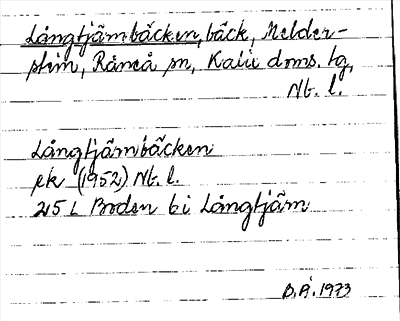 Långtjärnbäcken, bäck, Melder-
stein, Råneå sn, Kalix doms. tg,
Nb. l.
Långtjärnbäcken
ek (1952) Nb. l.
25 L Boden 6i Långtjärn
B.Å. 1973